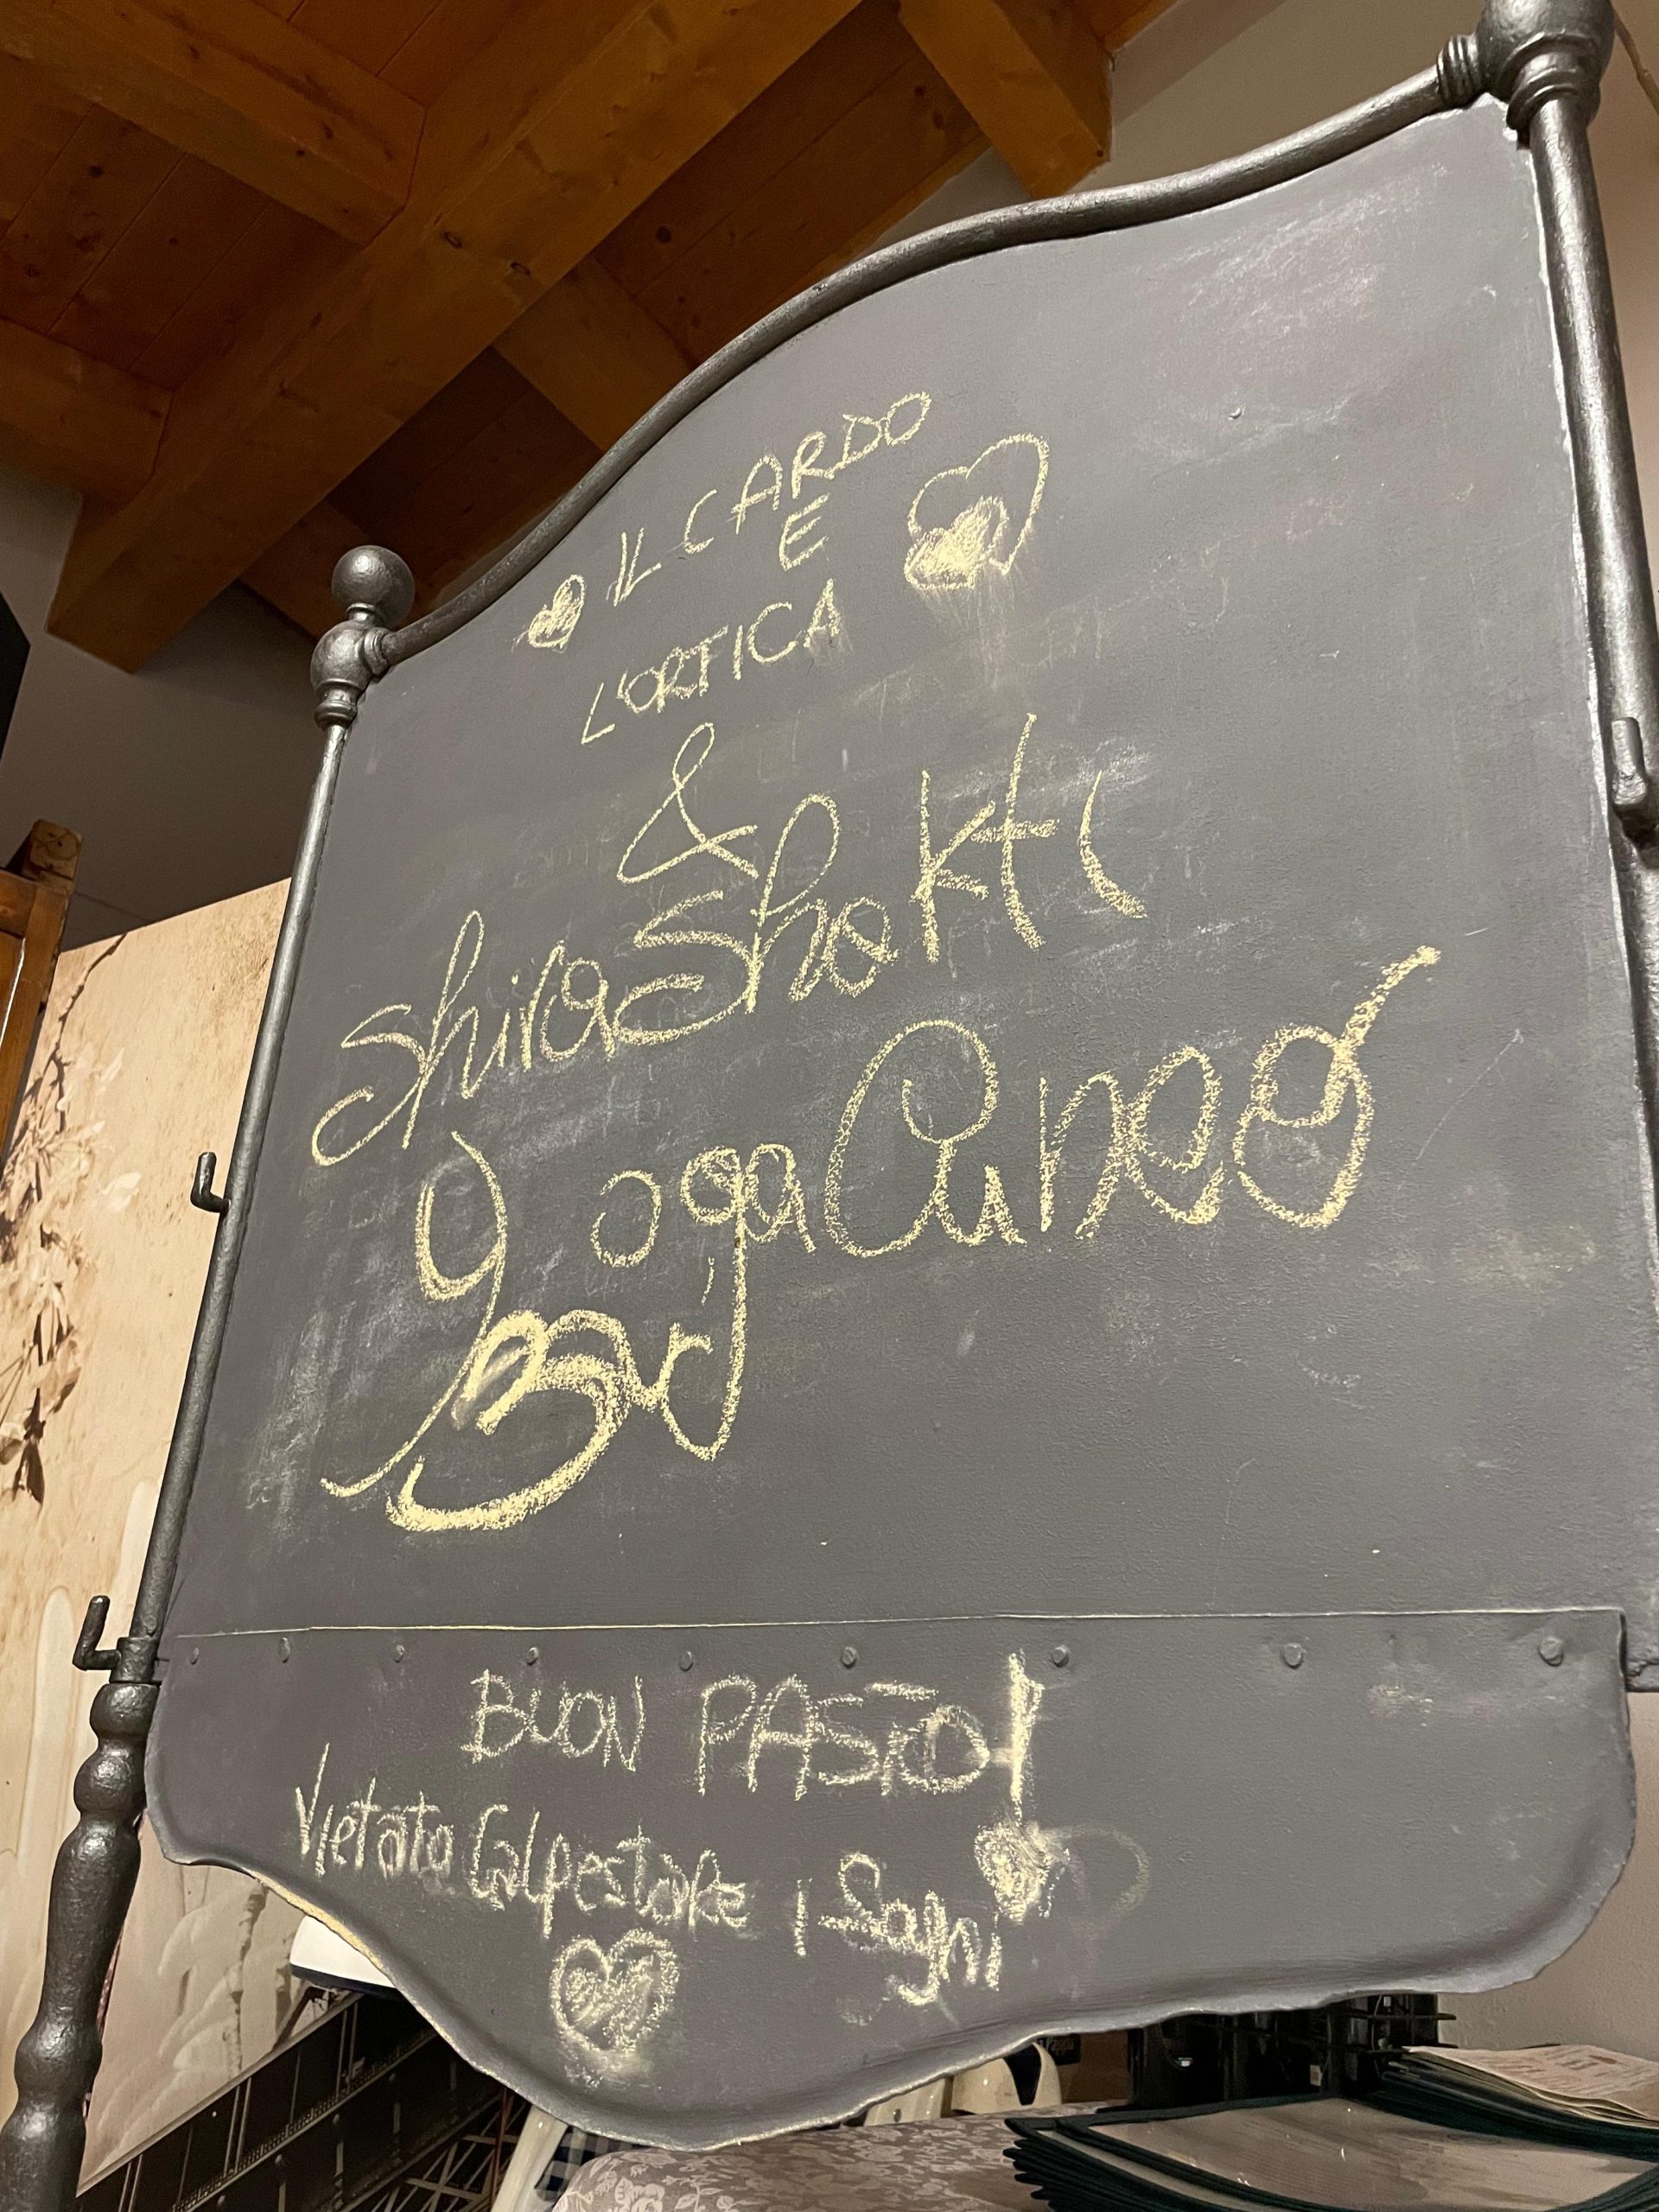 IL CARDO
E
L'ORTICA
&
ShivaShakti
Yoga Cuneo
BUON PASTO!
Vietato Calpestare i Sogni